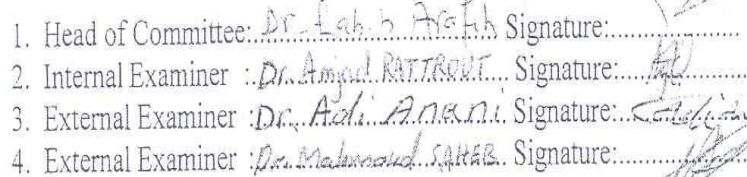 1. Head of Committee: Dr. Labib Arafeh Signature:
2. Internal Examiner : Dr. Amjad RATTROUT Signature:
3. External Examiner : Dr. Adi Anani Signature:
4. External Examiner : Dr. Mahmoud SAHEB Signature: